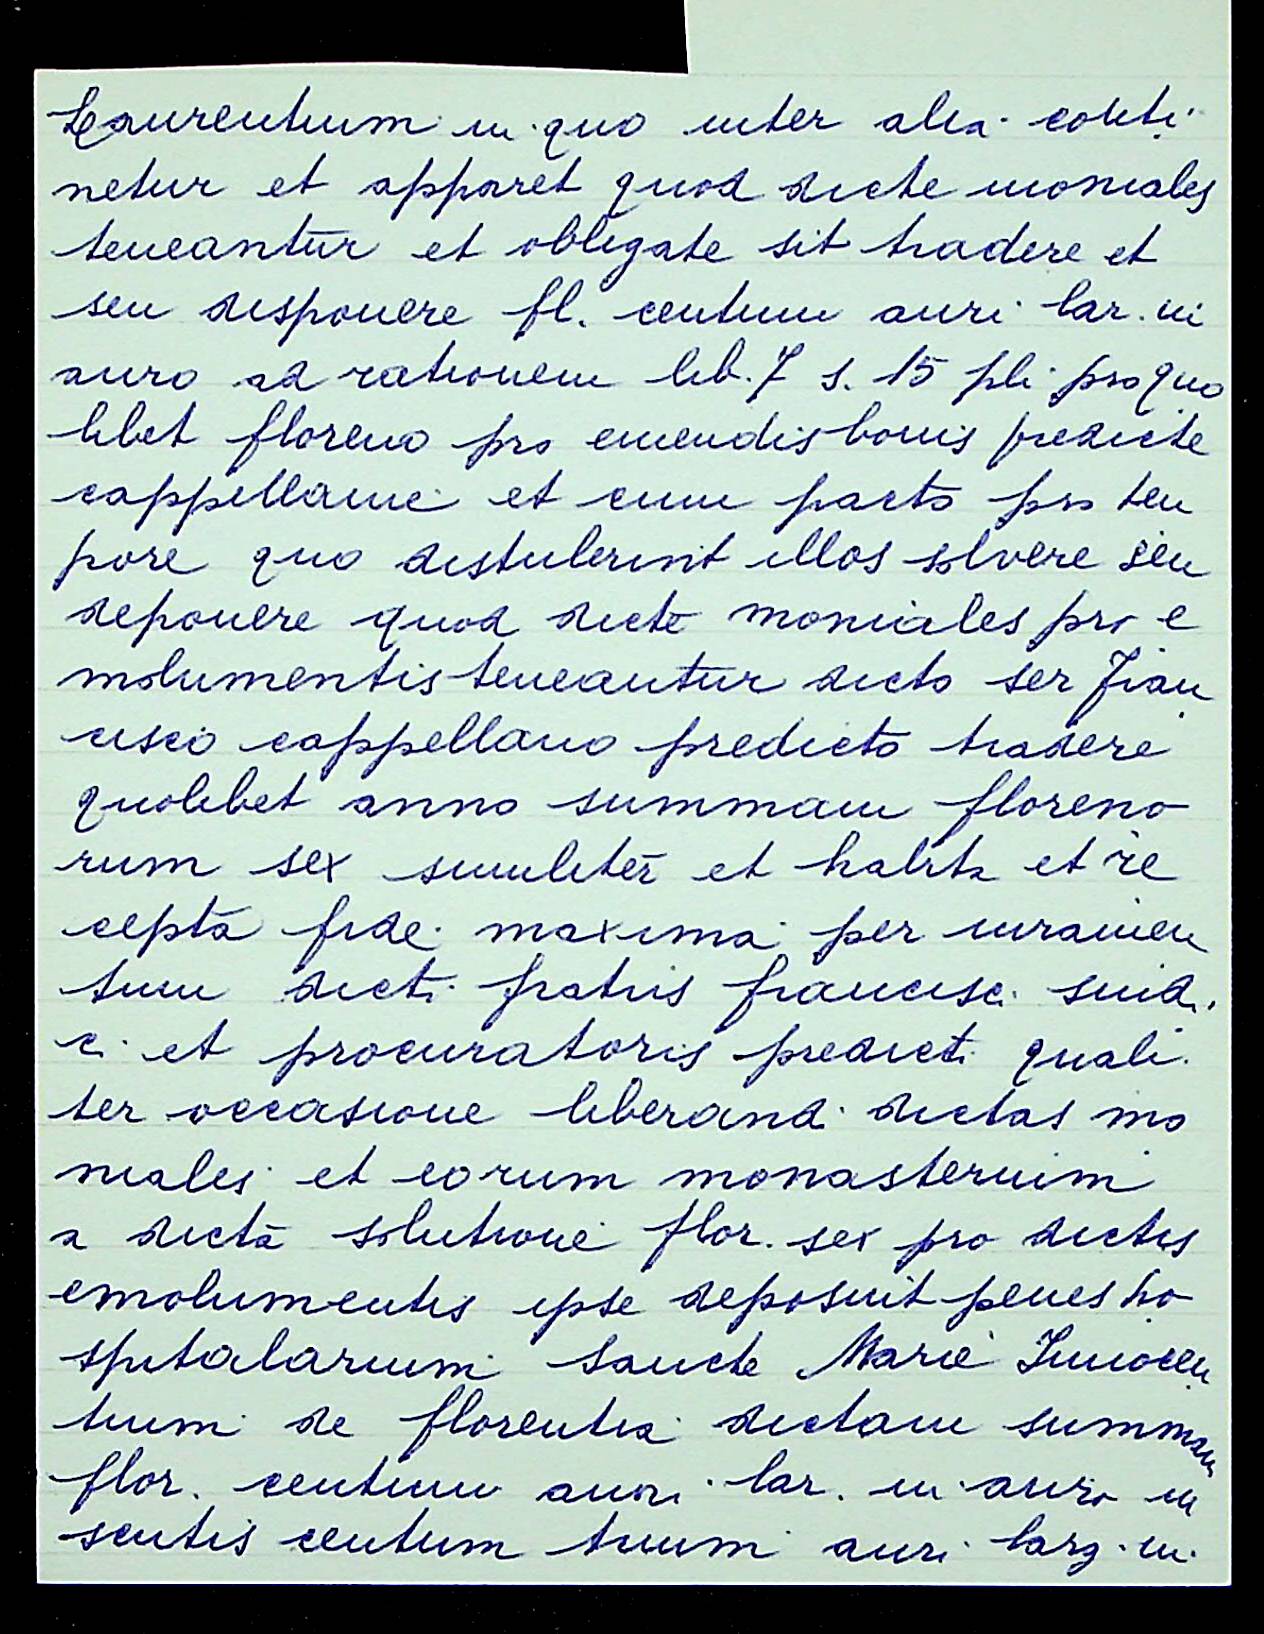 Laurentium in quo inter alia conti
netur et apparet quod dicte moniales
teneantur et obligate sit tradere et
seu disponere fl. centum auri lar. in
auro ad rationem lib. 7 s. 15 pli pro quo
libet floreno pro emendis bonis predicte
cappellanie et cum pacto pro tem
pore quo distulerint illos solvere seu
deponere quod dicte moniales pro e
molumentis teneantur dicto ser Fran
cisco cappellano predicto tradere
quolibet anno summam floreno
rum sex similiter et habita et re
cepta fide maxima per iuramen
tum dicti fratris francisci sindi
ci et procuratoris predicti quali
ter occasione liberandi dictas mo
niales et eorum monasterium
a dicta solutione flor. sex pro dictis
emolumentis ipse deposuit penes ho
spitalarium Sancte Marie Innocen
tium de florentia dictam summam
flor. centum auri lar. in auro in
scutis centum trium auri larg. in